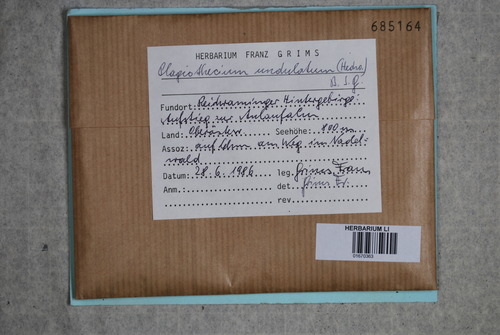 685164
HERBARIUM FRANZ GRIMS
Plagiothecium undulatum (Hedw.)
B.S.G.
Fundort: Reichraminger Hintergebirge:
Aufstieg zur Anlaufalm
Land: Oberösterr. Seehöhe: 800 m
Assoz: auf Lehm am Weg im Nadel-
wald
Datum: 28.6.1986 leg. Grims Franz
Anm.: det. Grims Fr.
rev.
HERBARIUM LI
01670363